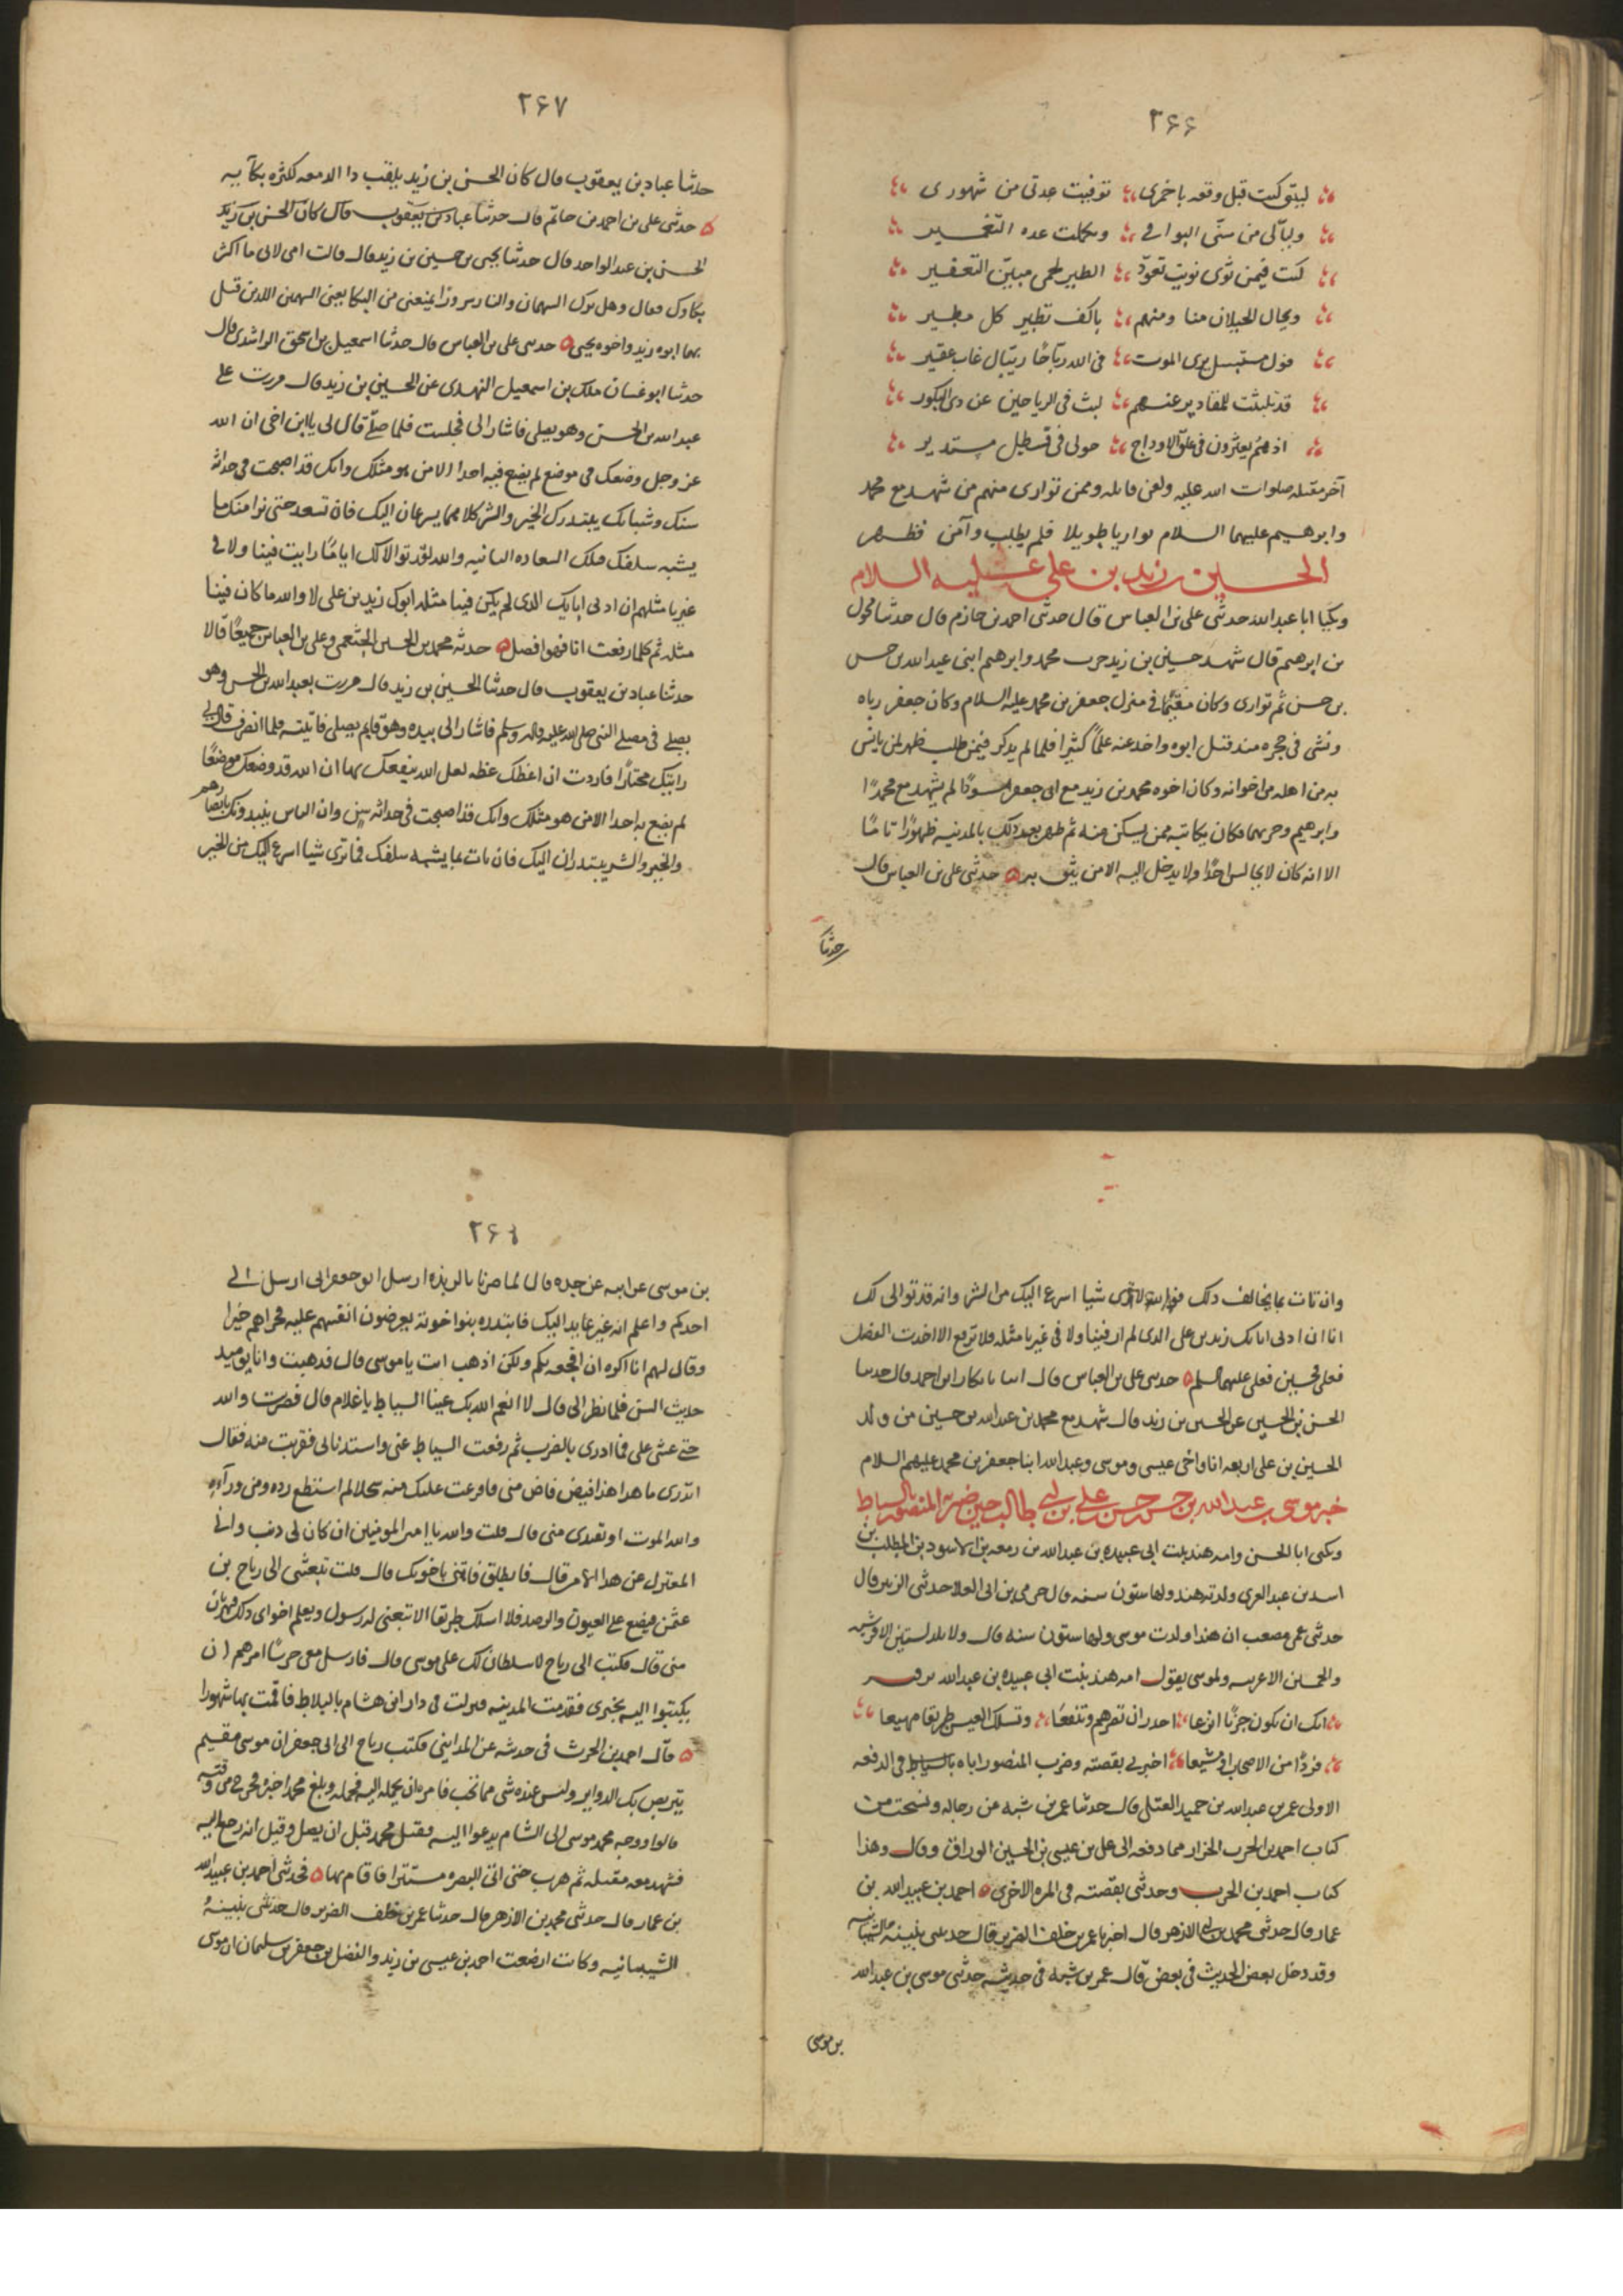 ٢۶۶
ليتني كنت قبل وقعه باخمرى توفيت عدتى من شهورى
وليالى من سنّى البواقى وتكملت عده التعمير
كنت فيمن ثوى ثويت تعود الطير لحمى مبين التعفير
ويجال الخيلان منا ومنهم باكف تطير كل مطير
قول مستبسل يرى الموت فى الله رباحًا ريبال غاب عقير
قد تلبثت للمقادير عنهم لبث فى الرياحين عن دى البكور
اذ هم يعثرون فى علق الاوداج حولى فى قسطل مستدير
آخر مقتله صلوات الله عليه ولعن قاتله وممن توارى منهم من شهد مع محمد
وابرهيم عليهما السلام تواريا طويلا فلم يطلب وآمن فظهر
الحسين بن زيد بن على عليه السلام
ويكنا ابا عبدالله حدثنى على بن العباس قال حدثنى احمد بن حازم قال حدثنا مخول
بن ابرهيم قال شهد حسين بن زيد حرب محمد وابرهيم ابنى عبدالله بن حسن
بن حسن ثم توارى وكان مقيمًا فى منزل جعفر بن محمد عليه السلام وكان جعفر رباه
ونشى فى حجره مند قتل ابوه واخد عنه علمًا كثيرا فلما لم يدكر فيمن طلب ظهر لمن يانس
به من اهله من اخوانه وكان اخوه محمد بن زيد مع ابى جعفر مسودًا لم يشهد مع محمد
وابرهيم حربهما فكان يكاتبه ممن يسكن منه ثم ظهر بعد دلك بالمدينه ظهورًا تامًا
الا انه كان لا يجالس احدًا ولا يدخل اليه الا من يثق به حدثنى على بن العباس قال
حدثنا
٢۶٧
حدثنا عباد بن يعقوب قال كان الحسن بن زيد يلقب دا الدمعه لكثره بكآيه
حدثنى على بن احمد بن حاتم قال حدثنا عباد بن يعقوب قال كان الحسن بن زيد
الحسن بن عبد الواحد قال حدثنا يحيى بن حسين بن زيد قال قالت امى لابى ما اكثر
بكاوك فقال وهل ترك السهمان والنار سرورًا يمنعنى من البكا يعنى السهمين اللدين قتل
بهما ابوه زيد واخوه يحيى حدثنى على بن العباس قال حدثنا اسمعيل بن اسحق الراشدى قال
حدثنا ابو غسان ملك بن اسمعيل النهدى عن الحسين بن زيد قال مررت على
عبدالله بن الحسن وهو يصلى فاشار الى فجلست فلما صلّى قال لى يا ابن اخى ان الله
عز وجل وضعك فى موضع لم يضع فيه احدا الا من هو مثلك وانك قد اصبحت فى حداثه
سنك وشبابك يبتدرك الخير والشر كلاهما يسرعان اليك فان تسعد حتى نرا منك ما
يشبه سلفك فتلك السعاده الثانيه والله لقد توالا لك ابآمًا رايت فينا ولا فى
غيرنا مثلهم ان ادنى ابايك الدى لم يكن فينا مثله ابوك زيد بن على لا والله ما كان فينا
مثله ثم كلما رفعت ابا فهو افضل حدثنا محمد بن الحسين الخثعمى وعلى بن العباس جميعًا قالا
حدثنا عباد بن يعقوب قال حدثنا الحسين بن زيد قال مررت بعبدالله بن الحسن وهو
يصلى فى مصلى النبى صلى الله عليه واله وسلم فاشار الى بيده وهو قايم يصلى فاتيته فلما انصرف قال لى
رايتك مختارًا فاردت ان اعظك عظه لعل الله ينفعك بها ان الله قد وضعك موضعًا
لم يضع به احدا الا من هو مثلك وانك قد اصبحت فى حداثه سن وان الناس يبتدرونك بابصارهم
والخير والشر يبتدران اليك فان تات بما يشبه سلفك فما ترى شيا اسرع اليك من الخير
وان تات بما يخالف دلك فوالله لا ترى شيا اسرع اليك من الشر وانه قد توالى لك
ابا ان ادنى ابايك زيد بن على الدى لم ار فينا ولا فى غيرنا مثله فلا ترفع الا اخدت الفضل
فعلى فحسين فعلى عليهم السلم حدثنى على بن العباس قال انبانا بكار بن احمد قال حدثنا
الحسن بن الحسين عن الحسين بن زيد قال شهد مع محمد بن عبدالله بن حسين من ولد
الحسين بن على اربعه انا واخى عيسى وموسى وعبدالله ابنا جعفر بن محمد عليهم السلام
خبر موسى بن عبدالله بن حسن بن حسن بن على بن ابى طالب حين ضربه المنصور بالسياط
ويكنى ابا الحسن وامه هند بنت ابى عبيده بن عبدالله بن زمعه بن الاسود بن المطلب بن
اسد بن عبد العزى ولدته هند ولها ستون سنه قال حرمى بن ابى العلا حدثنى الزبير قال
حدثنى عمى مصعب ان هندا ولدت موسى ولها ستون سنه قال ولا تلد لستين الا قرشيه
ولخمسين الا عربيه ولموسى يقول امه هند بنت ابى عبيده بن عبدالله
انك ان تكون جونًا انزعا اجدر ان تضرهم وتنفعا وتسلك العيس طريقا مهيعا
فردًا من الاصحاب او مشيعا اخبرنى بقصته وضرب المنصور اياه بالسياط فى الدفعه
الاولى عمر بن عبدالله بن حميد العتكى قال حدثنا عمر بن شبه عن رجاله ونسخت من
كتاب احمد بن الحرب الخزاز مما دفعه الى على بن عيسى بن الحسين الوراق وقال وهذا
كتاب احمد بن الحرب وحدثنى بقصته فى المره الاخرى احمد بن عبيدالله بن
عمار قال حدثنى محمد بن ابى الازهر قال اخبرنا عمر بن خلف الضرير قال حدثنى بثينه الشيبانيه
وقد دخل بعض الحديث فى بعض قال عمر بن شبه فى حديثه حدثنى موسى بن عبدالله
بن موسى
بن موسى عن ابيه عن جده قال لما صرنا بالربذه ارسل ابو جعفر الى ابى ارسل الى
احدكم واعلم انه غير عايد اليك فابتدره بنوا اخوته يعرضون انفسهم عليه فجزاهم خيرا
وقال لهم انا اكره ان افجعهم بكم ولكن اذهب انت يا موسى قال فدهبت وانا يوميد
حديث السن فلما نظر الى قال لا انعم الله بك عينا السياط يا غلام قال فضربت والله
حتى غشى على فما ادرى بالضرب ثم رفعت السياط عنى واستدنانى فقربت منه فقال
اتدرى ما هدا هذا فيض فاض منى فافرغت عليك منه سجلا لم استطع رده ومن ورآءه
والله الموت او تفتدى منى قال قلت والله يا امير المومنين ان كان لى دنب وانى
لمعتزل عن هدا الامر قال فانطلق فاتنى باخويك قال قلت تبعثنى الى رياح بن
عثمن فيضع على العيون والرصد فلا اسلك طريقا الا تبعنى له رسول ويعلم اخواى دلك فيهربان
منى قال فكتب الى رياح لا سلطان لك على موسى قال فارسل معى حرسًا امرهم ان
يكتبوا اليه بخبرى فقدمت المدينه فنزلت فى دار ابن هشام بالبلاط فاقمت بها شهورا
قال احمد بن الحرث فى حديثه عن المداينى فكتب رياح الى ابى جعفر ان موسى مقيم
يتربص بك الدواير وليس عنده شى مما تحب فامره ان يحمله اليه فحمله وبلغ محمدا خبره فخرج من وقته
قالوا ووجه محمد موسى الى الشام يدعوا اليه فقتل محمد قبل ان يصل وقيل انه رجع اليه
فشهد معه مقتله ثم هرب حتى اتى البصره مستترا فاقام بها فحدثنى احمد بن عبيدالله
بن عمار قال حدثنى محمد بن الازهر قال حدثنا عمر بن خلف الضرير قال حدثتنى بثينه
الشيبانيه وكانت ارضعت احمد بن عيسى بن زيد والفضل بن جعفر بن سليمان ان موسى